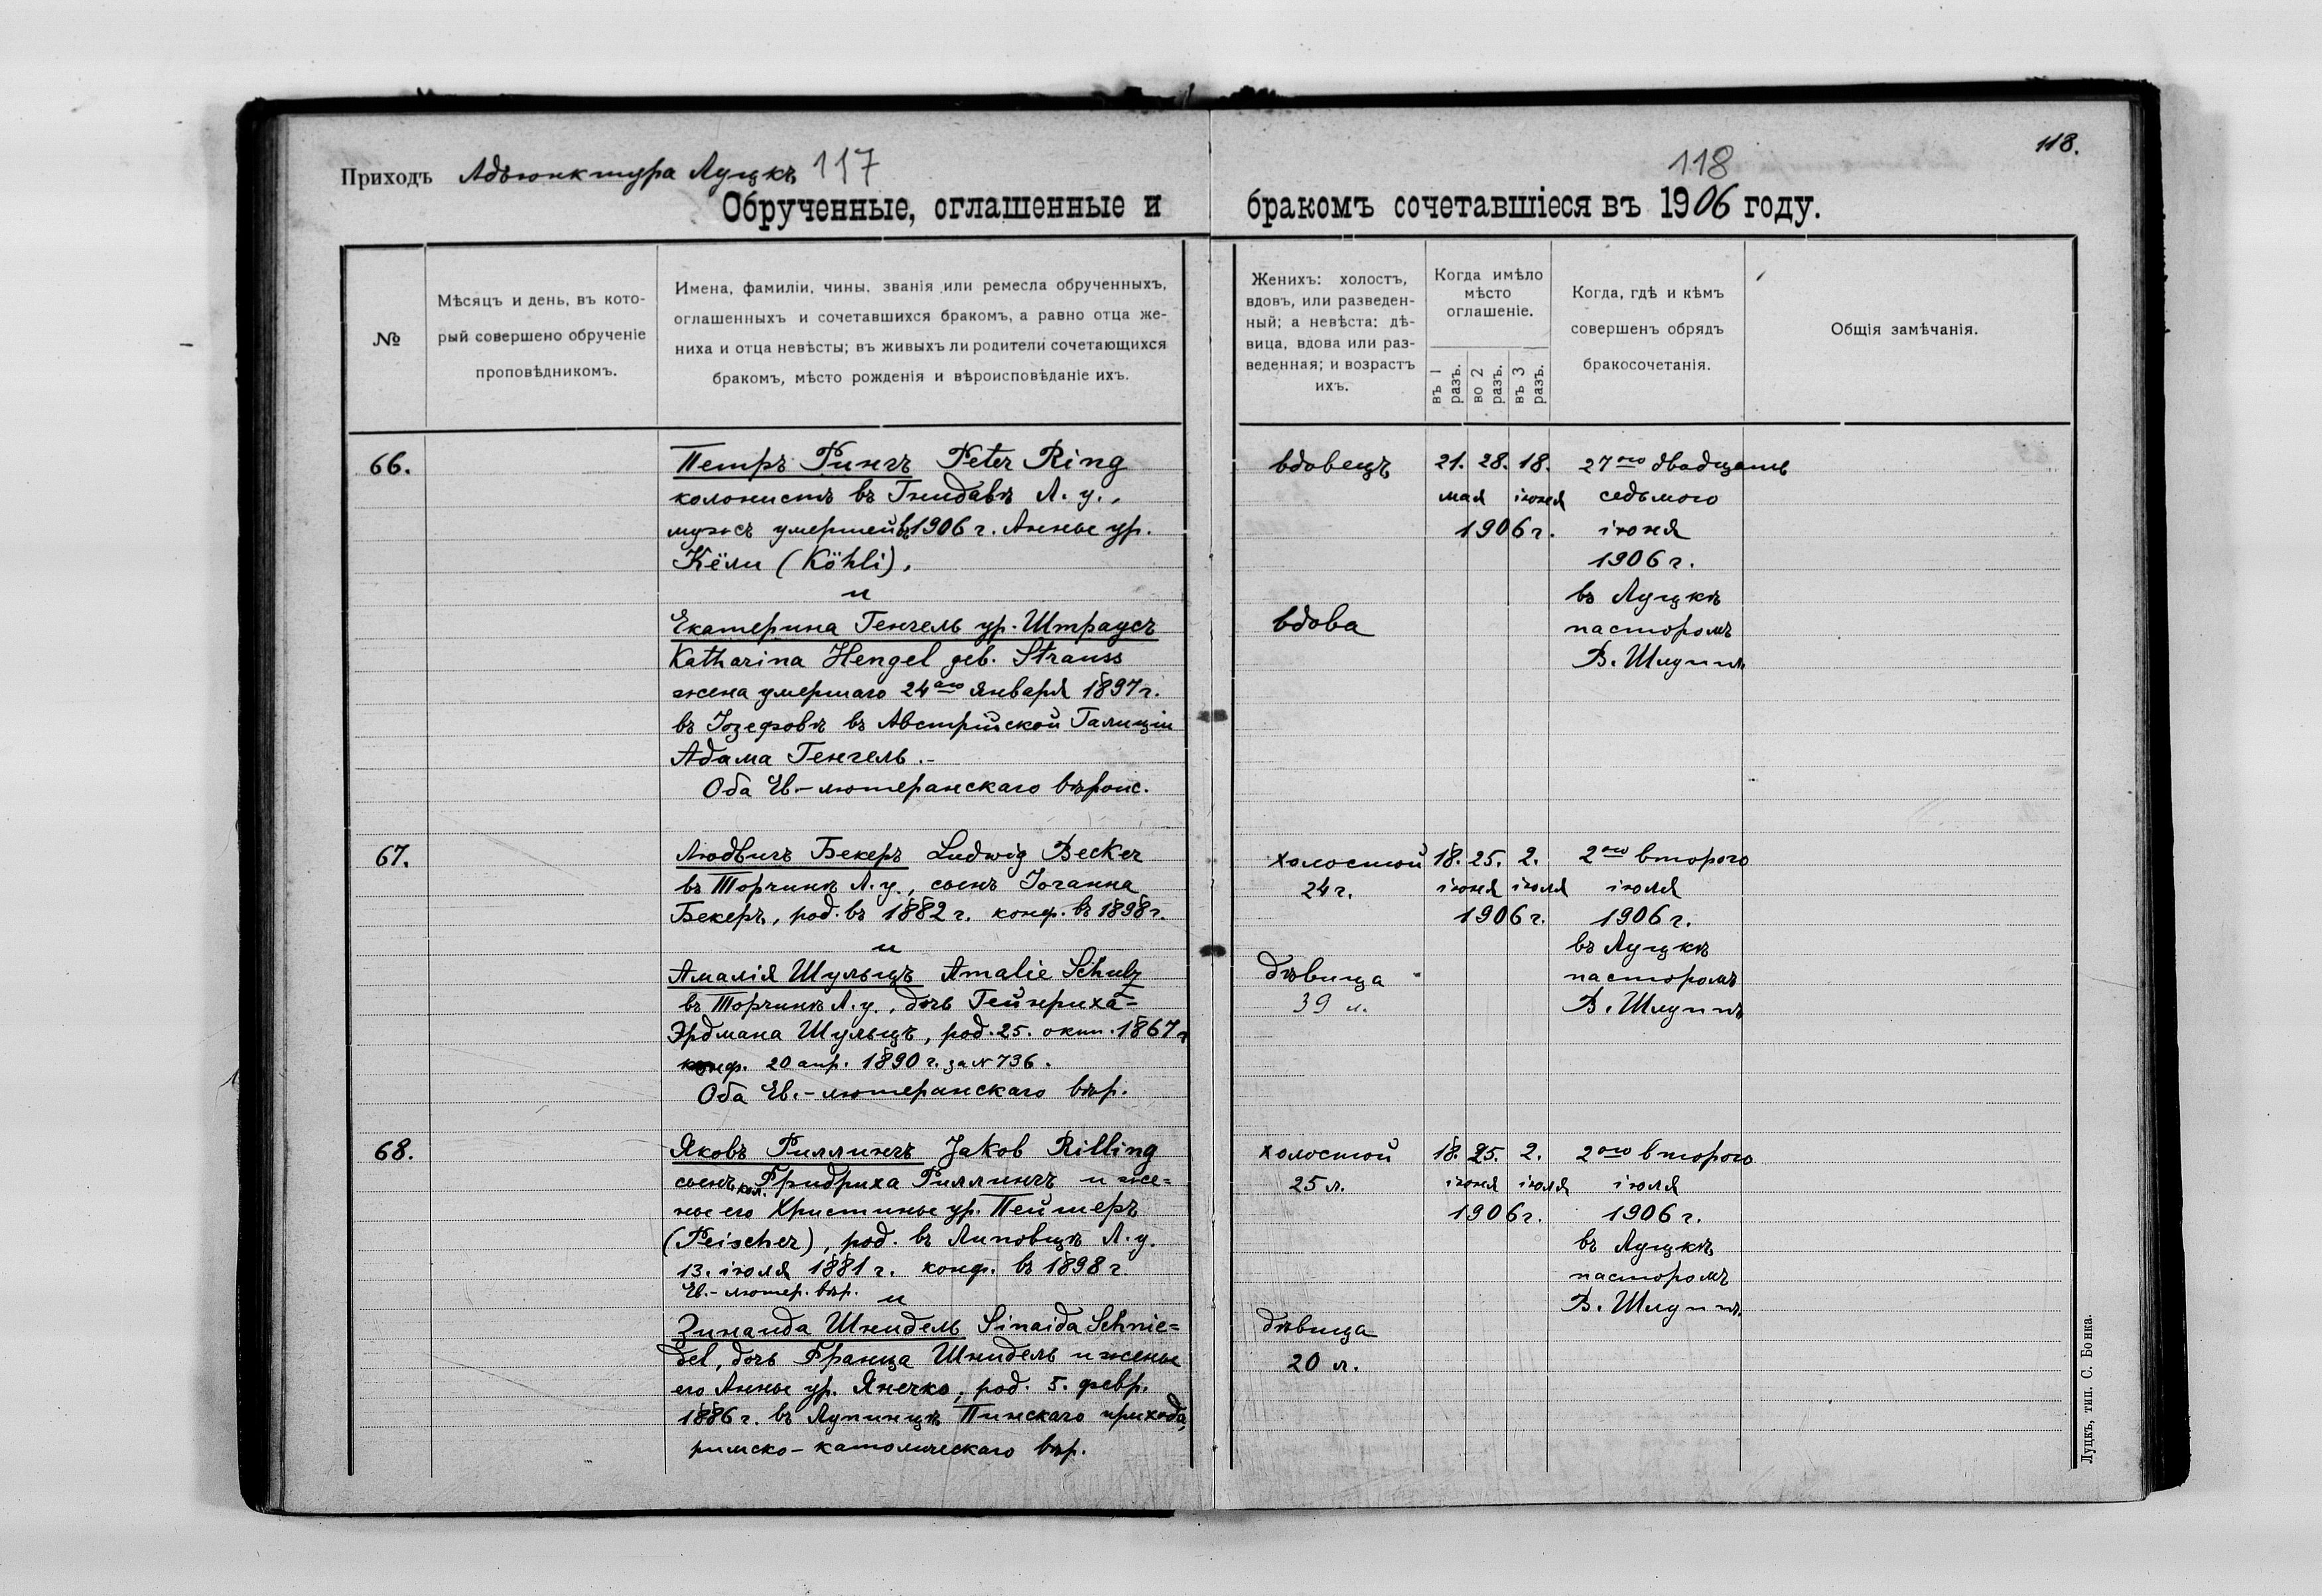 Приходъ Адъюнктура Луцкъ 117
118
118.
Обрученные, оглашенные и бракомъ сочетавшіеся въ 1906 году.
№
Мѣсяцъ и день, въ кото-
рый совершено обрученіе
проповѣдникомъ.
Имена, фамиліи, чины, званія или ремесла обрученныхъ,
оглашенныхъ и сочетавшихся бракомъ, а равно отца же-
ниха и отца невѣсты; въ живыхъ ли родители сочетающихся
бракомъ, мѣсто рожденія и вѣроисповѣданіе ихъ.
Женихъ: холостъ,
вдовъ, или разведен-
ный; а невѣста: дѣ-
вица, вдова или раз-
веденная; и возрастъ
ихъ.
Когда имѣло
мѣсто
оглашеніе.
въ 1 разъ.
во 2 разъ.
въ 3 разъ.
Когда, гдѣ и кѣмъ
совершенъ обрядъ
бракосочетанія.
Общія замѣчанія.
66.
Петръ Рингъ Peter Ring
колонистъ въ Гнидавѣ Л. у.,
мужъ умершей въ 1906 г. Анны ур.
Кёли (Köhli),
и
Екатерина Генгель ур. Штраусъ
Katharina Hengel geb. Strauss
жена умершаго 24аго января 1897 г.
въ Іозефовѣ въ Австрійской Галиціи
Адама Генгель.-
Оба Ев.-лютеранскаго вѣроис.
вдовецъ
вдова
21. 28. 18.
мая іюня
1906 г.
27ого двадцать
седьмого
іюня
1906 г.
въ Луцкѣ
пасторомъ
В. Шлуппъ
67.
Людвигъ Бекеръ Ludwig Becker
въ Торчинѣ Л. у., сынъ Іоганна
Бекеръ, род. въ 1882 г. конф. въ 1898 г.
и
Амалія Шульцъ Amalie Schulz
въ Торчинѣ Л. у., дочь Гейнриха-
Эрдмана Шульцъ, род. 25. окт. 1867 г
конф. 20 апр. 1890 г. за № 736.
Оба Ев.-лютеранскаго вѣр.
холостой
24 г.
дѣвица
39 л.
18. 25. 2.
іюня іюля
1906 г.
2ого второго
іюля
1906 г.
въ Луцкѣ
пасторомъ
В. Шлуппъ
68.
Яковъ Риллингъ Jakob Rilling
сынъ кол. Фридриха Риллингъ и же=
ны его Христины ур. Пейшеръ
(Peischer), род. въ Липовцѣ Л. у.
13. іюля 1881 г. конф. въ 1898 г.
Ев.-лютер. вѣр.
и
Зинаида Шнидель Sinaida Schnie=
del, дочь Франца Шнидель и жены
его Анны ур. Янечко, род. 5. февр.
1886 г. въ Лунинцѣ Пинскаго прихода,
римско-католическаго вѣр.
холостой
25 л.
дѣвица
20 л.
18. 25. 2.
іюня іюля
1906 г.
2ого второго
іюля
1906 г.
въ Луцкѣ
пасторомъ
В. Шлуппъ.
Луцкъ, тип. С. Бонка.